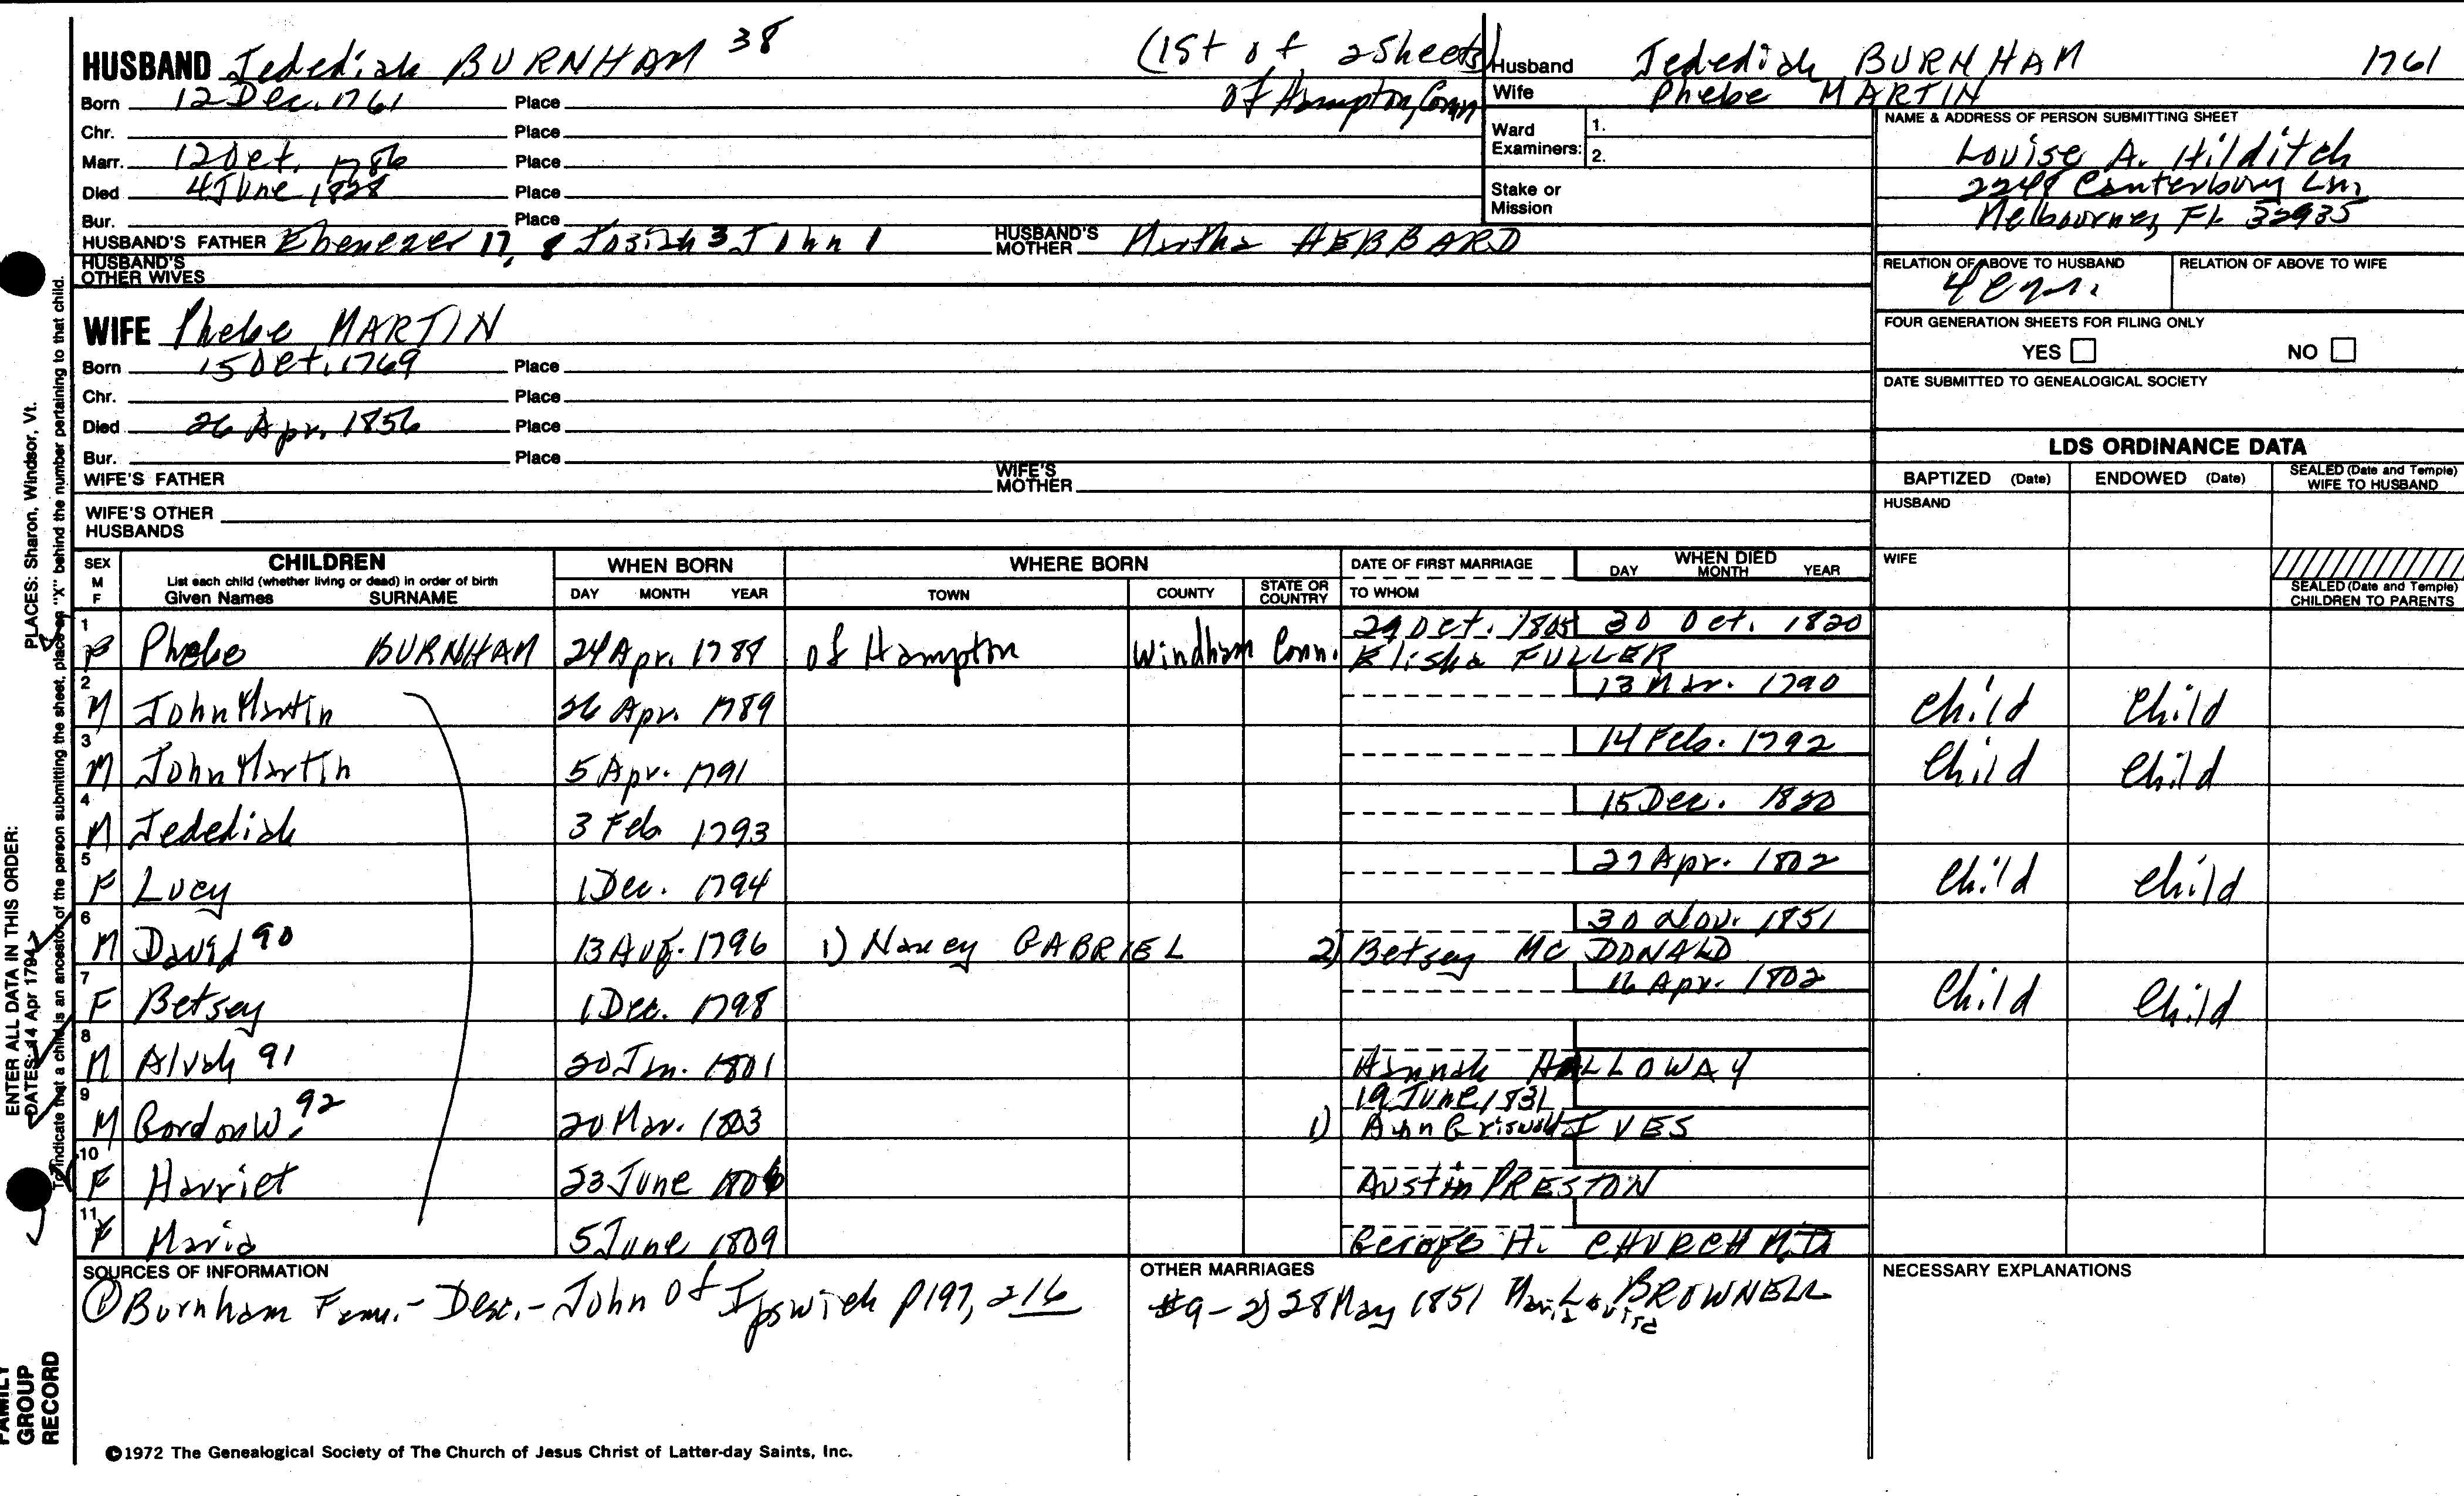 HUSBAND Jedediah BURNHAM 38 (1st of 2 sheets)
Born 12 Dec. 1761 Place of Hampton, Conn
Chr. Place
Marr. 12 Oct. 1786 Place
Died 4 June 1828 Place
Bur. Place
HUSBAND'S FATHER Ebenezer 17, 8 Josiah 3 John 1 HUSBAND'S MOTHER Martha HEBBARD
HUSBAND'S OTHER WIVES
WIFE Phebe MARTIN
Born 15 Oct. 1769 Place
Chr. Place
Died 26 Apr. 1856 Place
Bur. Place
WIFE'S FATHER WIFE'S MOTHER
WIFE'S OTHER HUSBANDS
Husband Jedediah BURNHAM 1761
Wife Phebe MARTIN
Ward Examiners: 1.
2.
Stake or Mission
NAME & ADDRESS OF PERSON SUBMITTING SHEET
Louise A. Hilditch
2248 Canterbury Ln,
Melbourne, FL 32935
RELATION OF ABOVE TO HUSBAND RELATION OF ABOVE TO WIFE
FOUR GENERATION SHEETS FOR FILING ONLY
YES NO
DATE SUBMITTED TO GENEALOGICAL SOCIETY
LDS ORDINANCE DATA
BAPTIZED (Date) ENDOWED (Date) SEALED (Date and Temple) WIFE TO HUSBAND
HUSBAND
WIFE
SEALED (Date and Temple) CHILDREN TO PARENTS
SEX M F CHILDREN WHEN BORN WHERE BORN DATE OF FIRST MARRIAGE WHEN DIED
List each child (whether living or dead) in order of birth
Given Names SURNAME DAY MONTH YEAR TOWN COUNTY STATE OR COUNTRY TO WHOM DAY MONTH YEAR
1 29 Oct. 1805 30 Oct. 1820
F Phebe BURNHAM 24 Apr. 1788 of Hampton Windham Conn. Elisha FULLER
2 13 Mar. 1790
M John Martin 26 Apr. 1789 Child Child
3 14 Feb. 1792
M John Martin 5 Apr. 1791 Child Child
4 15 Dec. 1820
M Jedediah 3 Feb 1793
5 27 Apr. 1802
F Lucy 1 Dec. 1794 Child Child
6 30 Nov. 1851
M David 90 13 Aug. 1796 1) Nancy GABRIEL 2) Betsey McDONALD
7 16 Apr. 1802
F Betsey 1 Dec. 1798 Child Child
8
M Alvah 91 20 Jan. 1801 Hannah HALLOWAY
9 19 June 1831
M Gordon W. 92 20 Mar. 1803 1) Ann Griswold IVES
10
F Harriet 23 June 1806 Austin PRESTON
11
F Maria 5 June 1809 George H. CHURCH M.D
SOURCES OF INFORMATION
① Burnham Fam. - Desc. - John of Ipswich p 197, 216
OTHER MARRIAGES
#9 - 2) 28 May 1851 Maria Louisa BROWNELL
NECESSARY EXPLANATIONS
©1972 The Genealogical Society of The Church of Jesus Christ of Latter-day Saints, Inc.
ENTER ALL DATA IN THIS ORDER:
DATES: 14 Apr 1794 PLACES: Sharon, Windsor, Vt.
To indicate that a child is an ancestor of the person submitting the sheet, place an "X" behind the number pertaining to that child.
FAMILY
GROUP
RECORD